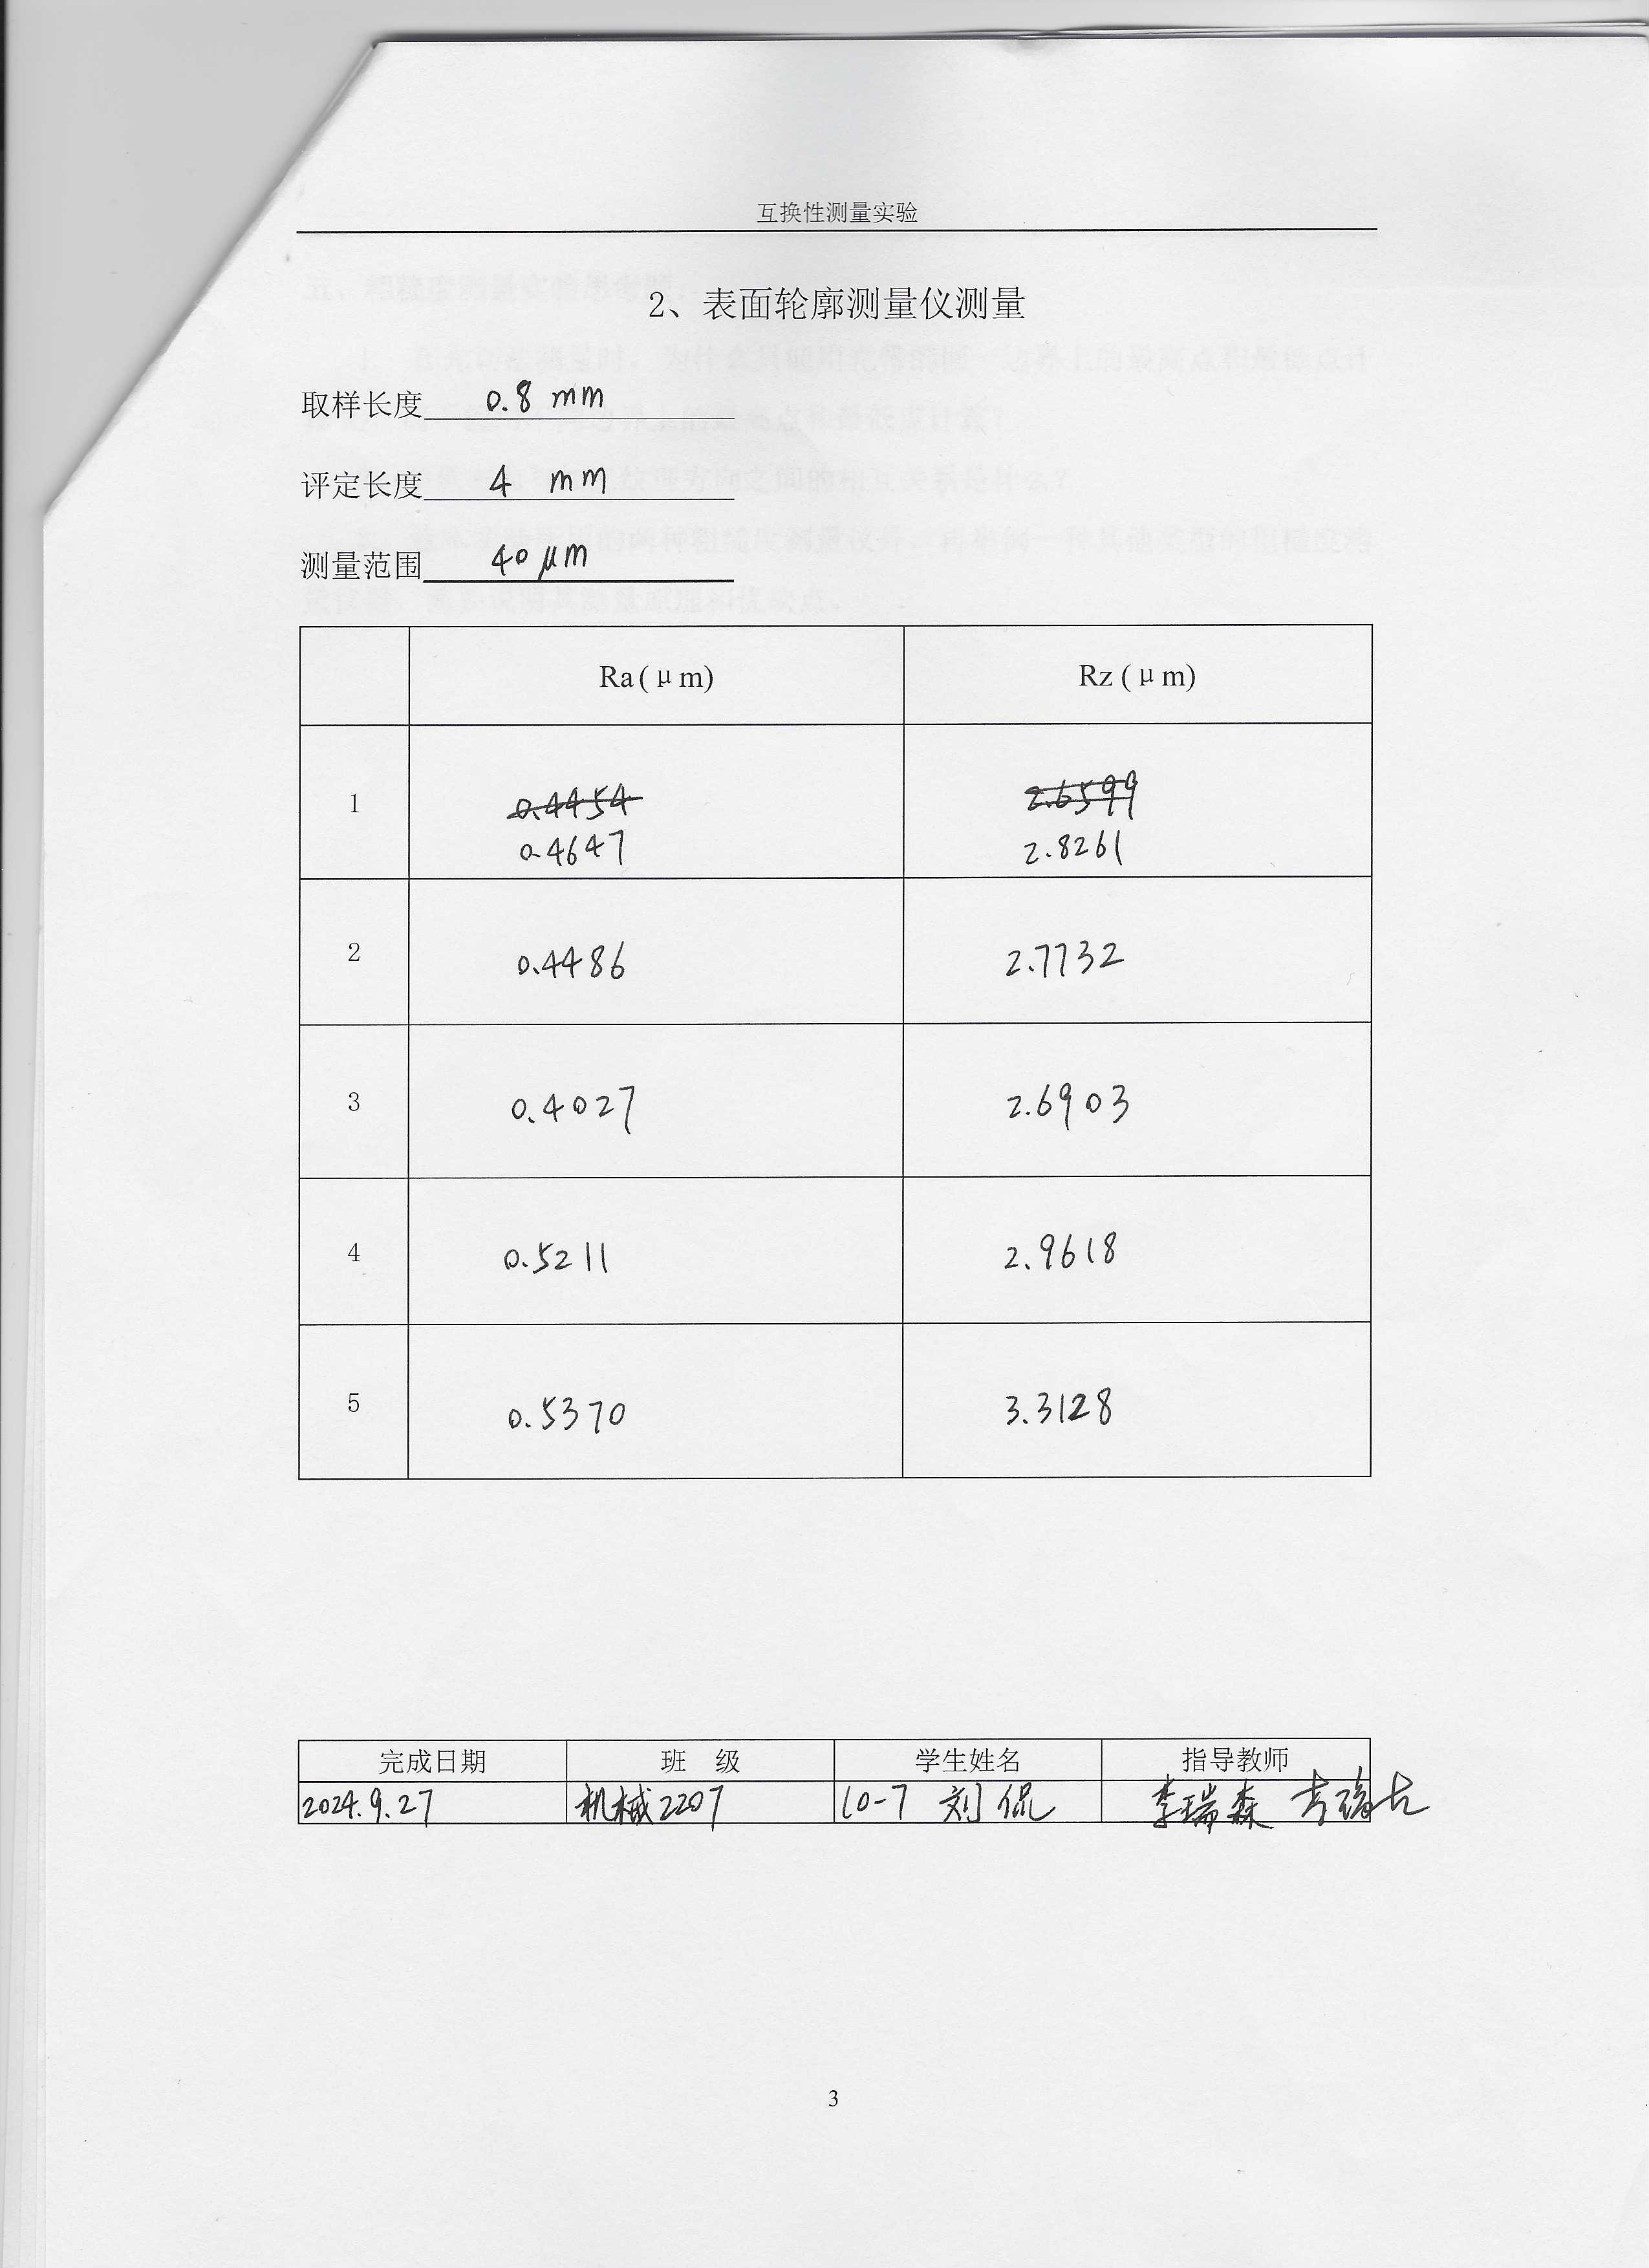 互换性测量实验
2、表面轮廓测量仪测量
取样长度 0.8 mm
评定长度 4 mm
测量范围 40 μm
Ra(μm) Rz(μm)
1 0.4454 2.6599
0.4647 2.8261
2 0.4486 2.7732
3 0.4027 2.6903
4 0.5211 2.9618
5 0.5370 3.3128
完成日期 班 级 学生姓名 指导教师
2024.9.27 机械2207 10-7 刘侃 李瑞森
3